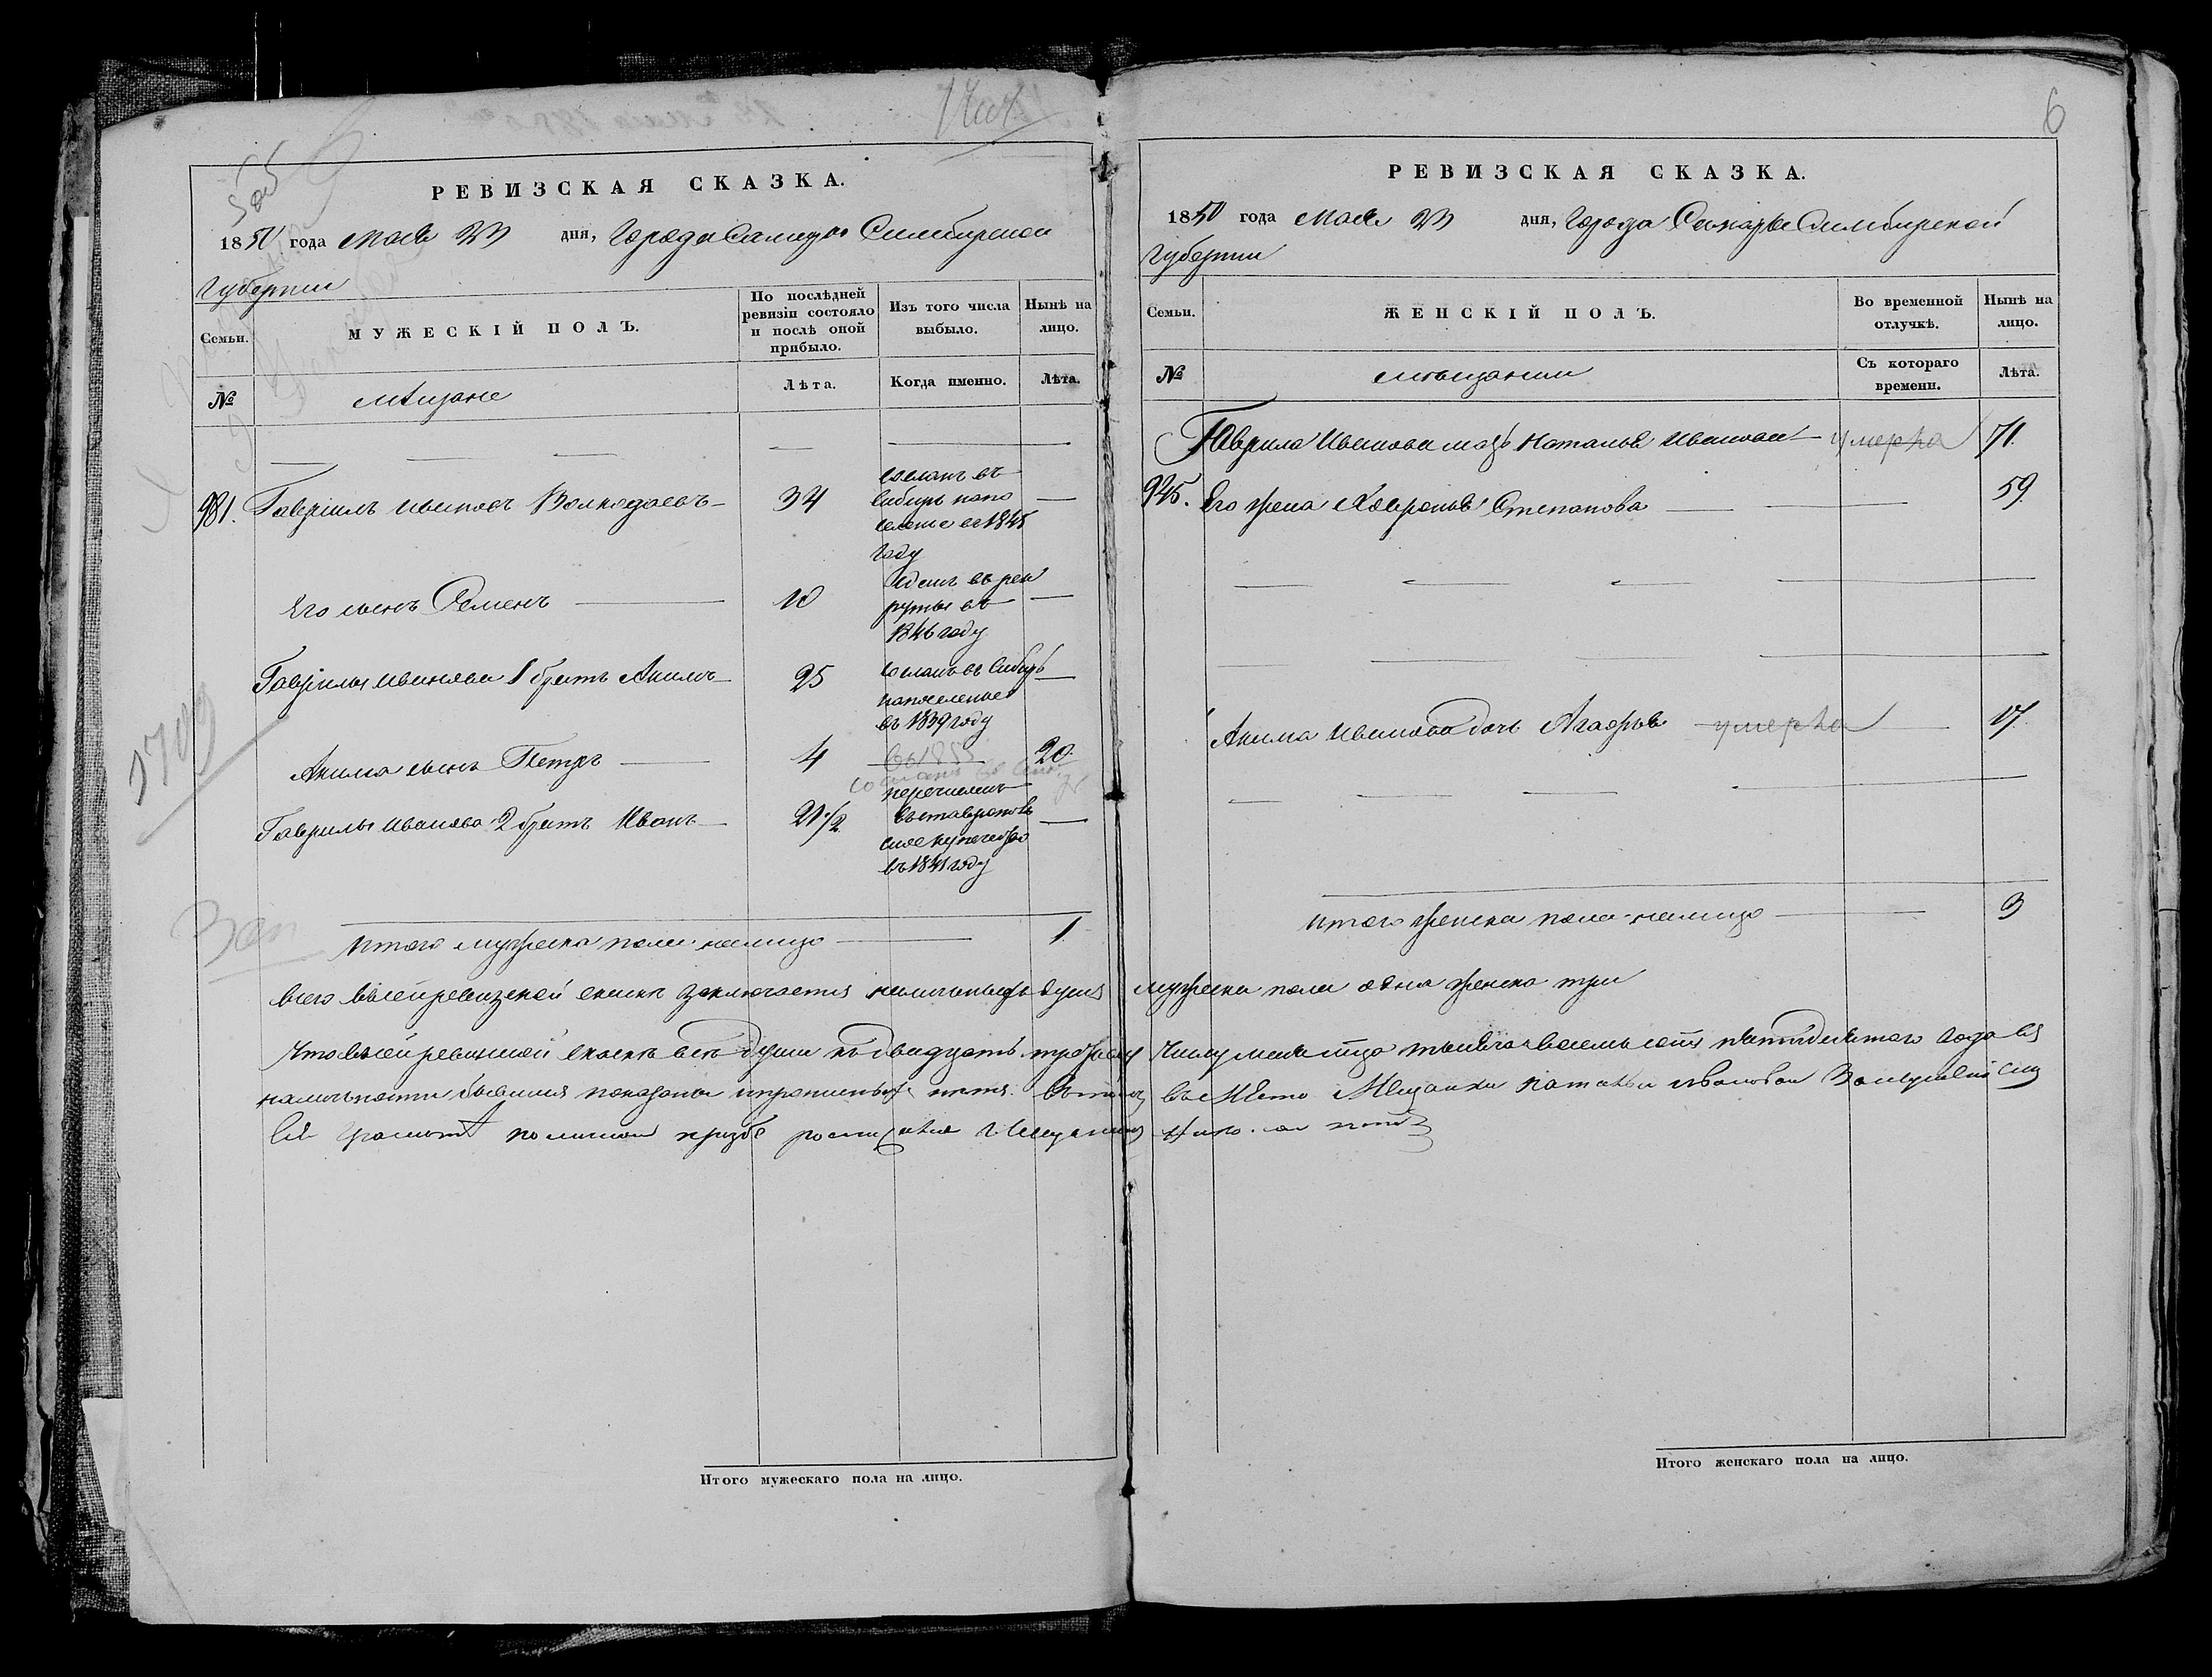 6
РЕВИЗСКАЯ СКАЗКА.
1850 года мая 23 дня, Города Самары Симбирской
Губернии
Семьи.
МУЖЕСКІЙ ПОЛЪ.
По послѣдней ревизіи состояло и послѣ оной прибыло.
Изъ того числа выбыло.
Нынѣ на лицо.
№
мѣщане
Лѣта.
Когда именно.
Лѣта.
981. Гавріилъ Ивановъ Волкодаевъ 34
сосланъ въ
Сибирь на по
селение въ 1845
году
Его сынъ Семенъ 10
отданъ въ рек
руты въ
1846 году
Гаврилы Иванова 1 братъ Акимъ 25
сосланъ въ Сибирь
на поселение
въ 1839 году
Акима сынъ Петръ 4 20
Гаврилы Иванова 2 братъ Иванъ 21 1/2
перечисленъ
въ ставрополь
ское купечество
въ 1841 году
1709
Зап
Итого мужеска пола налицо 1
РЕВИЗСКАЯ СКАЗКА.
1850 года мая 23 дня, Города Самары Симбирской
Губернии
Семьи.
ЖЕНСКІЙ ПОЛЪ.
Во временной отлучкѣ.
Нынѣ на лицо.
№
мѣщанки
Съ котораго времени.
Лѣта.
Гаврила Иванова мать Наталья Иванова умерла 71.
945. Его жена Хавронья Степанова 59
Акима Иванова дочь Агафья умерла 17.
Итого женска пола налицо 3
Всего в сей ревизской сказке заключается наличныхъ душъ мужеска пола одна женска три
Что в сей ревизской сказке все души къ двадцать третьему числу мая тысяча восемьсотъ пятидесятого года въ
наличности бывшия показаны и прописныхъ нетъ. въ место Мещанки Натальи Ивановой
грамоте по личной прозбе мещанин
Итого мужескаго пола на лицо.
Итого женскаго пола на лицо.